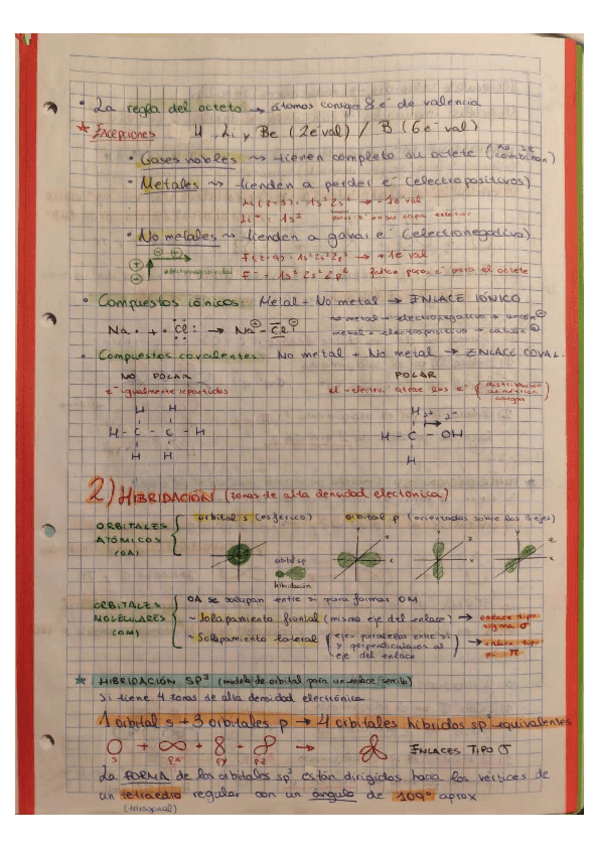 • La regla del octeto → átomos consiga 8 e⁻ de valencia
* Excepciones H, Li y Be (2e⁻val) / B (6e⁻ val)
• Gases nobles → tienen completo su octete (no se combinan)
• Metales → tienden a perder e⁻ (electropositivos)
Li (z=3): 1s² 2s¹ → -1e val
Li⁺ = 1s²
• No metales → tienden a ganar e⁻ (electronegativo)
F (z=9): 1s² 2s² 2p⁵ → +1e val
F⁻ = 1s² 2s² 2p⁶
para el octete
• Compuestos iónicos: Metal + No metal → ENLACE IÓNICO
no metal → electronegativo → anión ⊖
metal → electropositivo → catión
Na· + ·Cl: → Na⊕ - Cl⊖
• Compuestos covalentes: No metal + No metal → ENLACE COVAL.
NO POLAR
POLAR
e⁻ igualmente repartidos
el +electro. atrae los e⁻ (distribución asimétrica cargas)
H H
H - C - C - H
H H
H
H - C - OH
H
2) HIBRIDACIÓN (zonas de alta densidad electrónica)
ORBITALES ATÓMICOS (OA)
orbital s (esférico)
orbital p (orientados sobre los 3 ejes)
orbital sp
hibridación
ORBITALES MOLECULARES (OM)
OA se solapan entre si para formar OM
~ Solapamiento frontal (mismo eje del enlace) → enlace tipo sigma σ
~ Solapamiento lateral (ejes paralelos entre sí y perpendiculares al eje del enlace → enlace tipo pi π
* HIBRIDACIÓN SP³ (modelo de orbital para un enlace sencillo)
Si tiene 4 zonas de alta densidad electrónica
1 orbital s + 3 orbitales p → 4 orbitales híbridos sp³ equivalentes
s px py pz
ENLACES TIPO σ
La FORMA de los orbitales sp³ están dirigidos hacia los vértices de
un tetraedro regular con un ángulo de 109° aprox
(tetragonal)